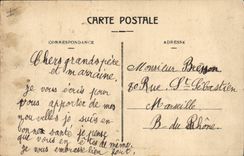 CARTE POSTALE
CORRESPONDANCE
ADRESSE
Chers grands-père
et marraine
je vous écris pour
vous apporter de mes
nouvelles je suis en
bonne santé je pense
que vous en êtes de même
je vous embrasse bien fort
Monsieur
80 Rue St Sébastien
Marseille
B. du Rhône